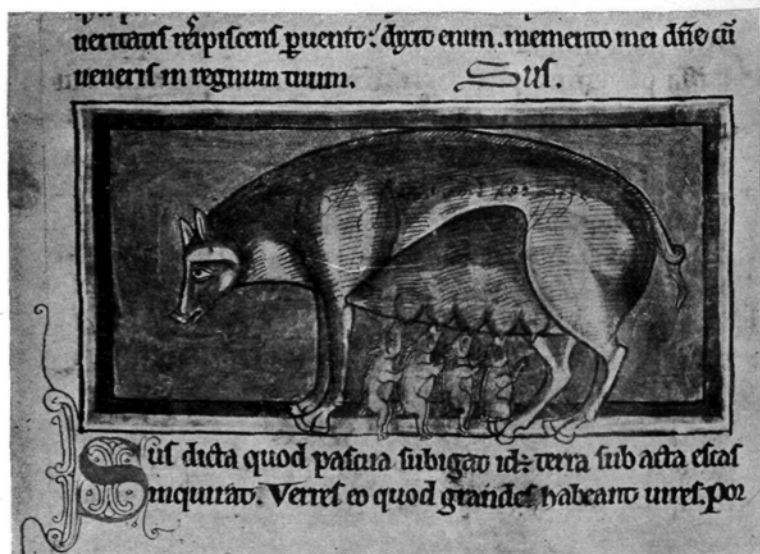 ueritatis resipiscens puento. dixit enim. memento mei dñe cũ
ueneris in regnum tuum. Sus.
Sus dicta quod pascua subigat id: terra sub acta escas
inquirat. Verres eo quod grandes habeant uires. por